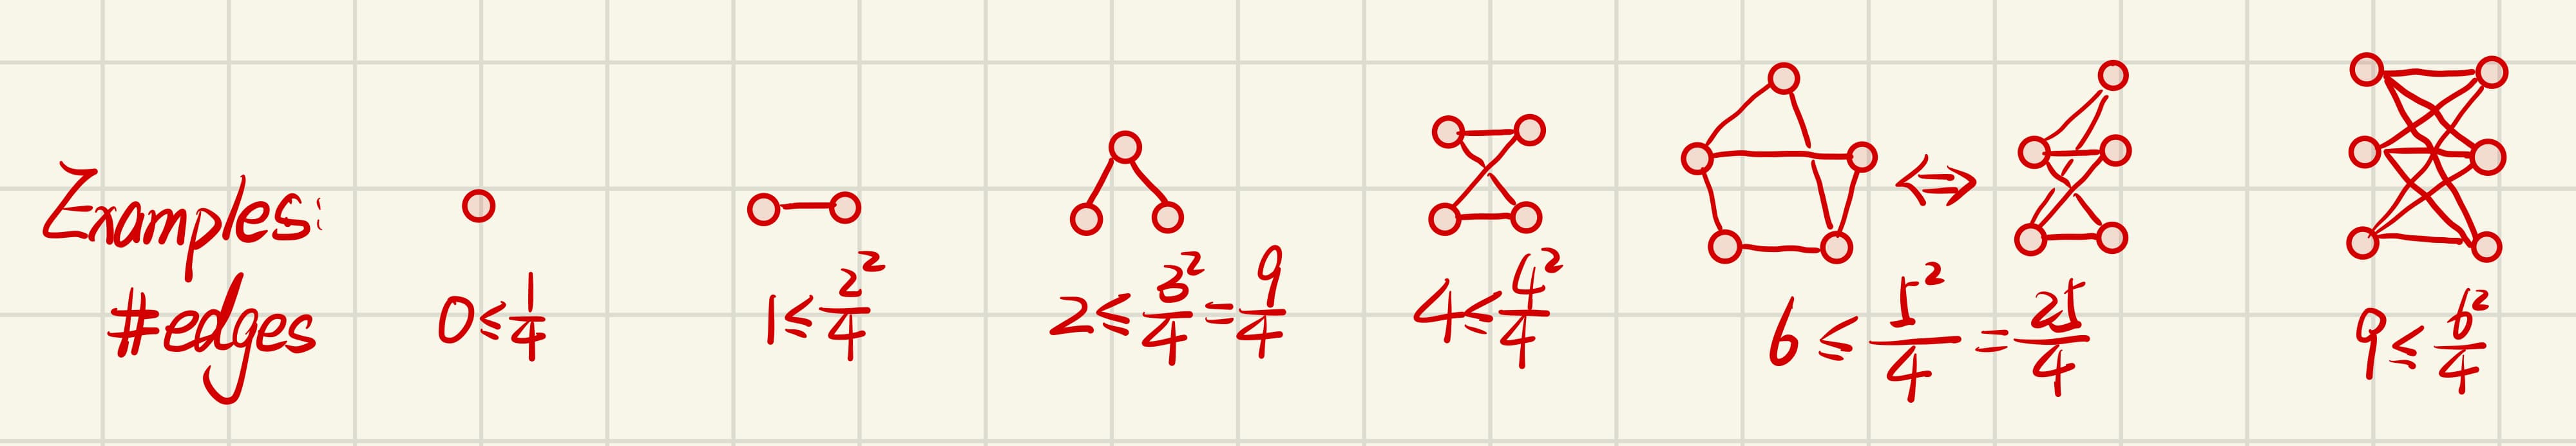 Examples:
#edges 0≤1/4 1≤2²/4 2≤3²/4=9/4 4≤4²/4 ⇔ 6≤5²/4=25/4 9≤6²/4